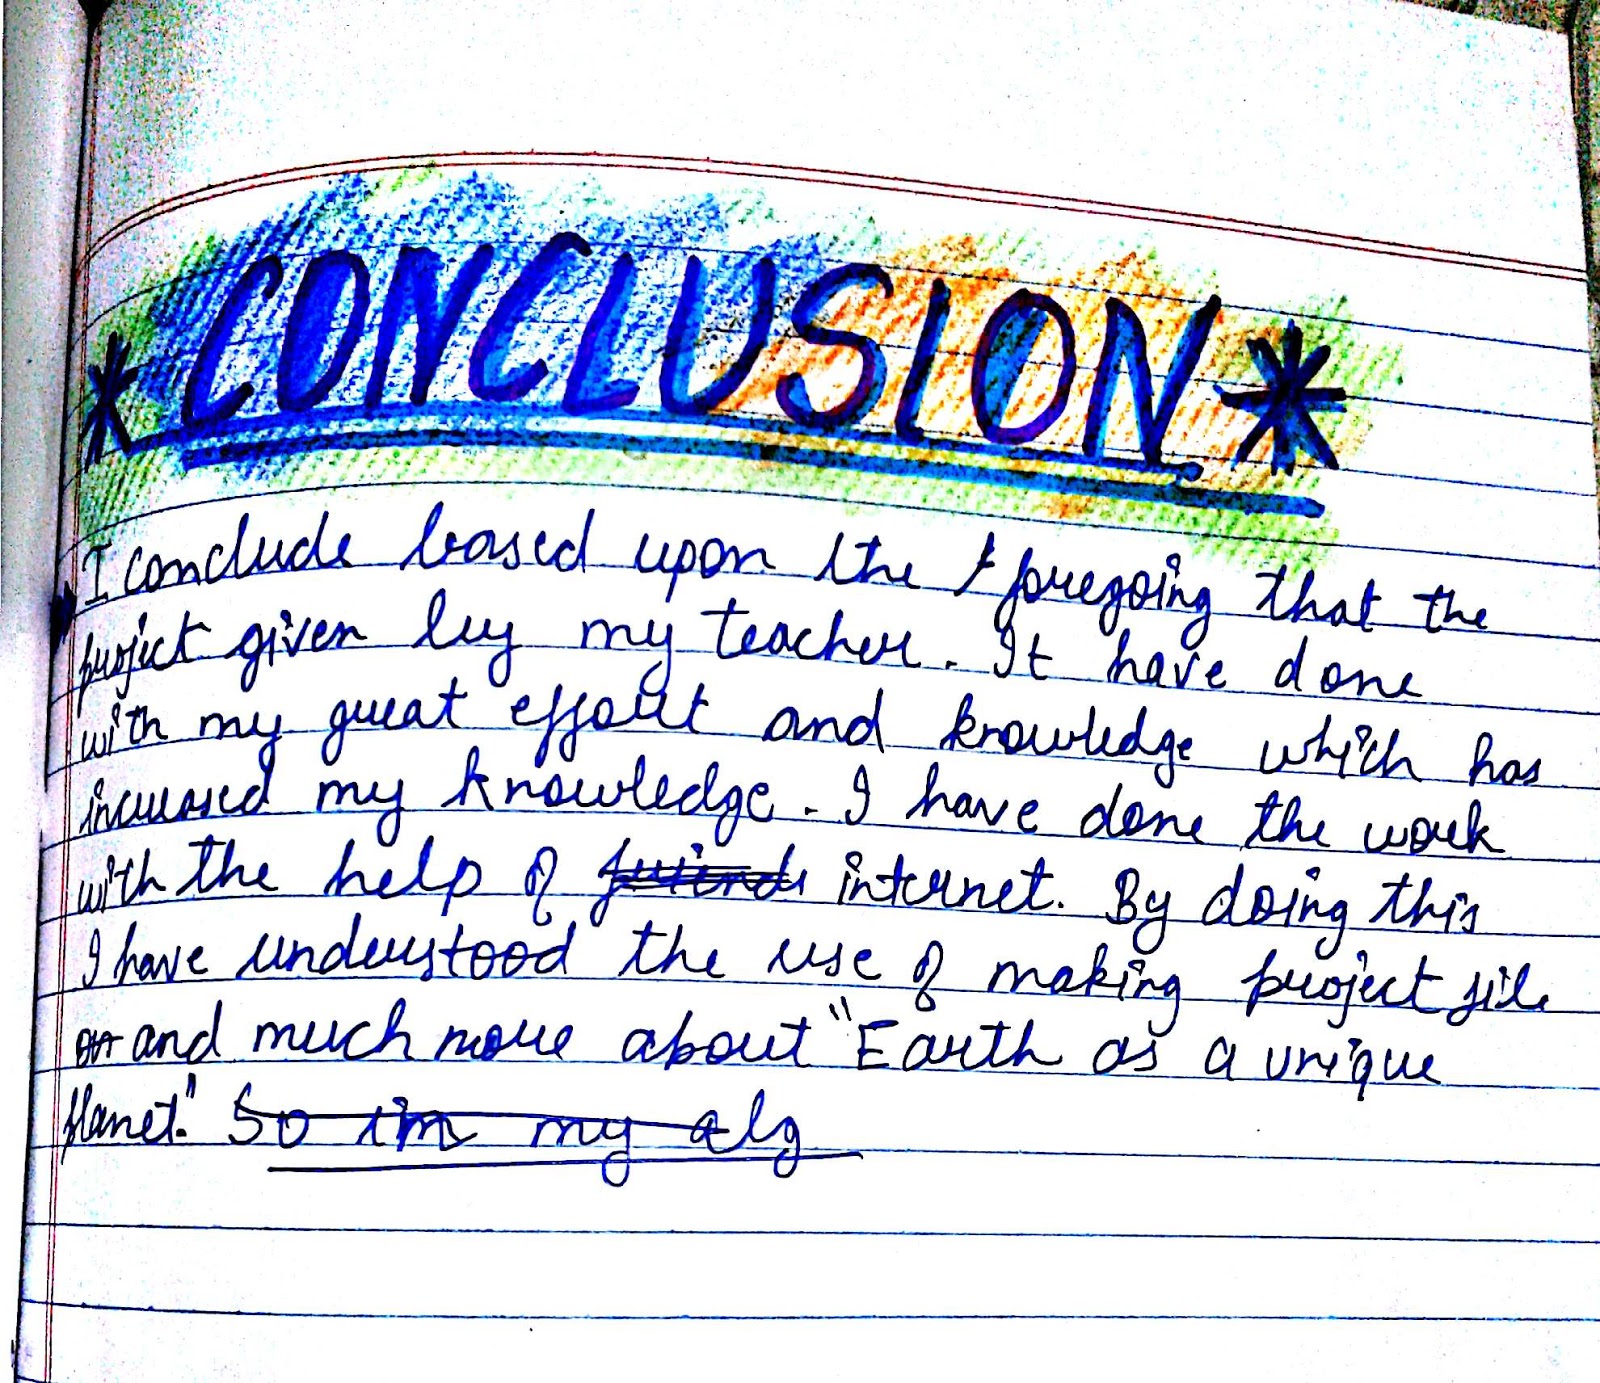 * CONCLUSION *
I conclude based upon the foregoing that the
project given by my teacher. It have done
with my great effort and knowledge which has
increased my knowledge. I have done the work
with the help of friends internet. By doing this
I have understood the use of making project file
and much more about "Earth as a unique
planet." So in my